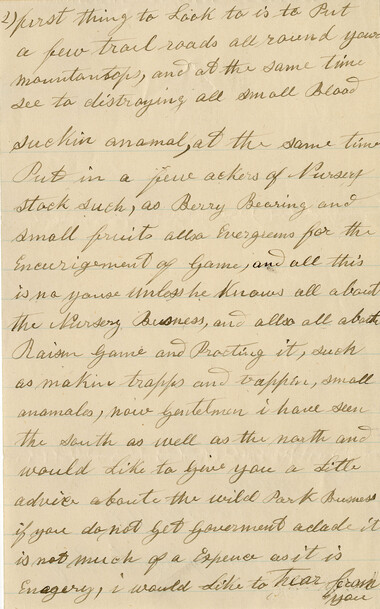 2) first thing to Look to is to Put
a few trail roads all round your
mountantops, and at the same time
see to distroying all small Blood
suckin anamal, at the same time
Put in a few ackers of Nursey
stock such, as Berry Bearing and
small fruits allso Evergreens for the
Encurigement of Game, and all this
is no youse unless he Knows all about
the Nursey Busness, and allso all about
Raisin Game and Procting it, such
as makin trapps and trappen, small
anamales, now gentelmen i have seen
the south as well as the north and
would Like to Give you a Little
advize aboute the wild Park Busness
if you do not get goverment aclade it
is not much of a Expence as it is
Enagery, i would like to hear from
you